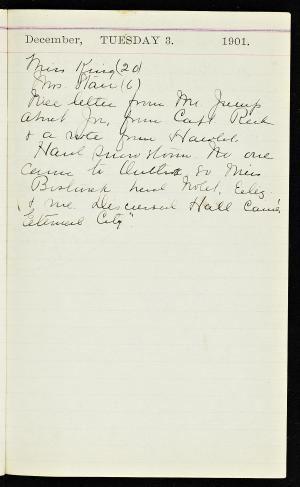 December, TUESDAY 3. 1901.
Miss King (20)
Mrs. Stair (6)
Nice letter from Mr. Jump
about Jr, from Capt Reek
& a note from Harold.
Hard snow storm. No one
came to Outlook so Miss
Bostwick head
& me discussed Hall Caine's
"Eternal City".